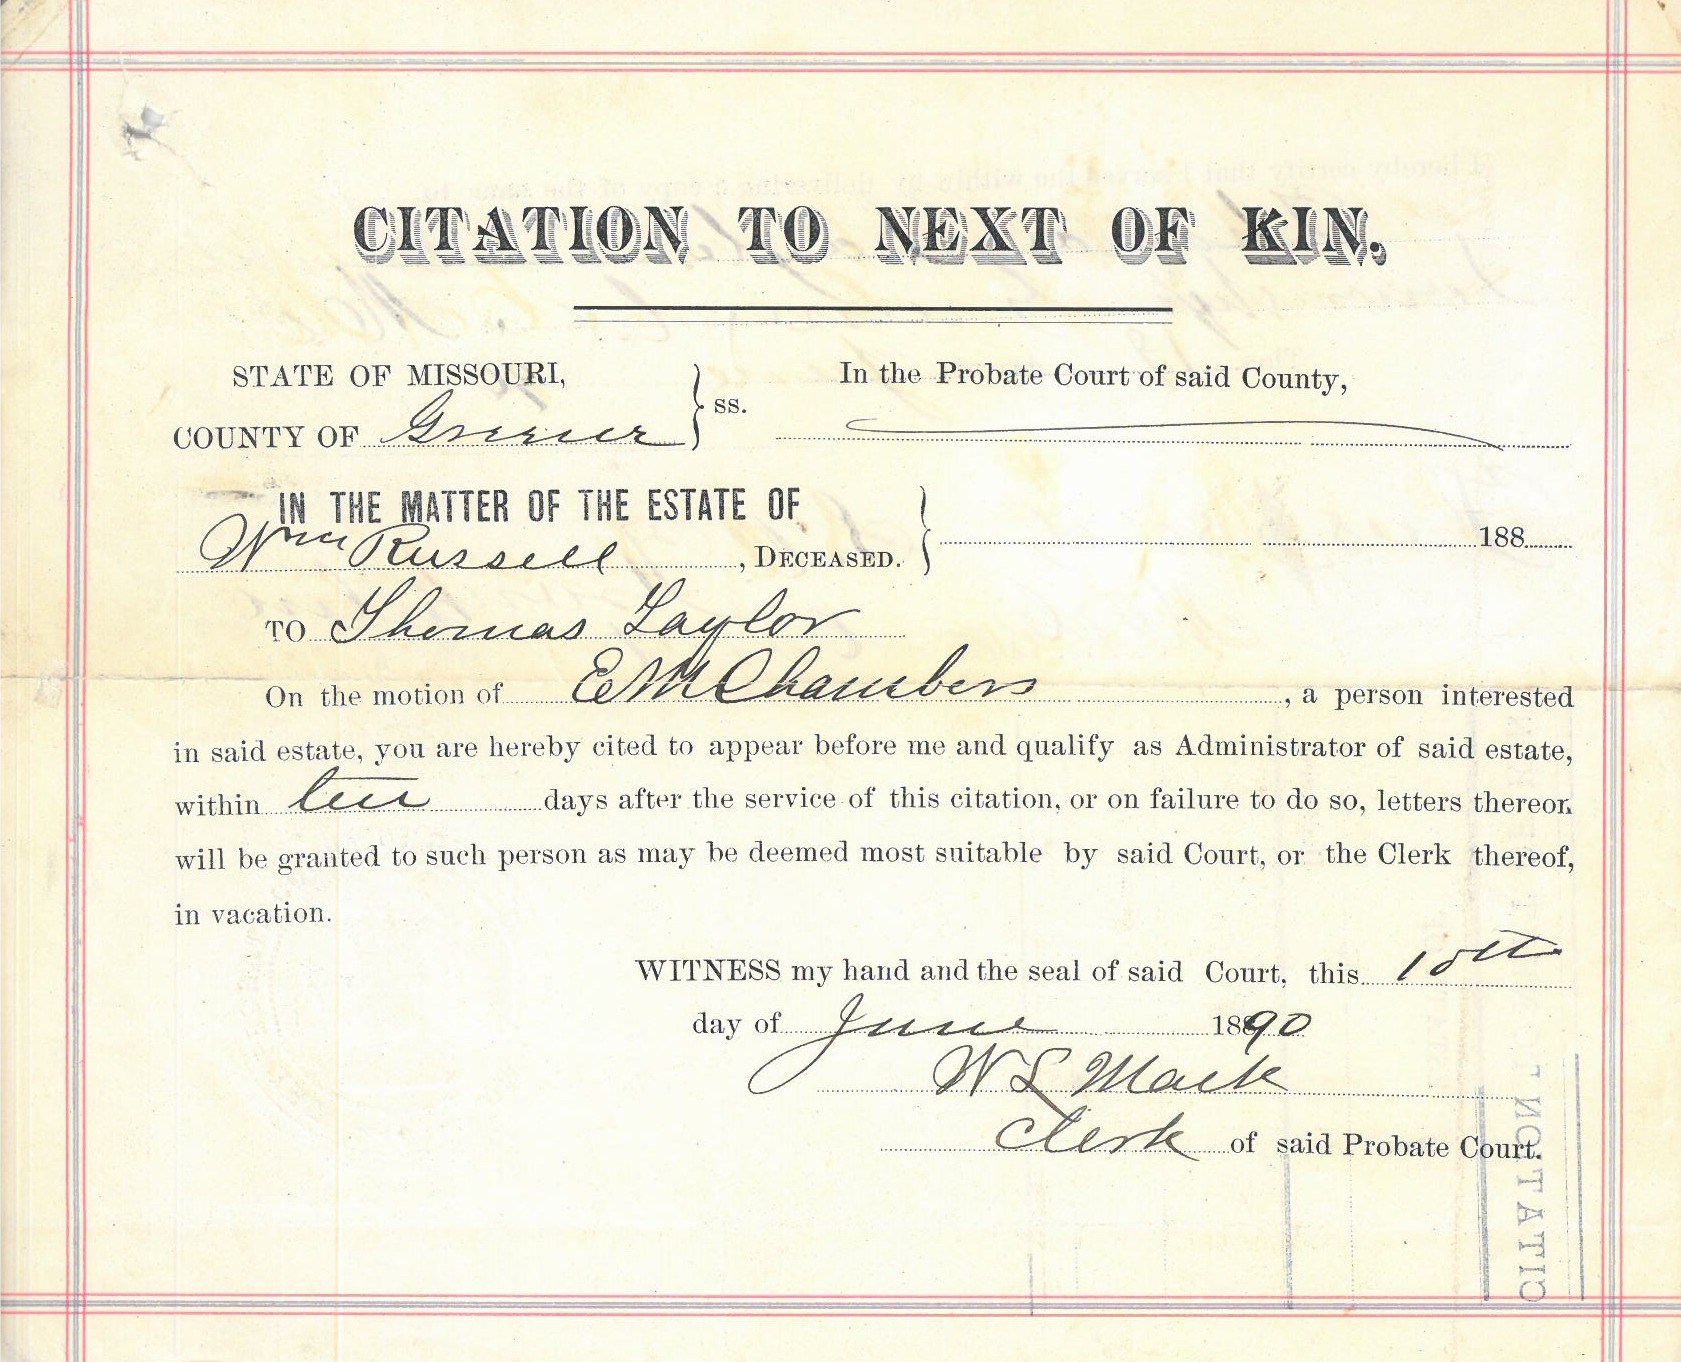 CITATION TO NEXT OF KIN.
STATE OF MISSOURI,
COUNTY OF Greene
ss.
In the Probate Court of said County,
IN THE MATTER OF THE ESTATE OF
Wm Russell, DECEASED.
188
TO Thomas Taylor
On the motion of E M Chambers, a person interested
in said estate, you are hereby cited to appear before me and qualify as Administrator of said estate,
within ten days after the service of this citation, or on failure to do so, letters thereon
will be granted to such person as may be deemed most suitable by said Court, or the Clerk thereof,
in vacation.
WITNESS my hand and the seal of said Court, this 10th
day of June 1890
W L Mack
Clerk of said Probate Court.
CITATION